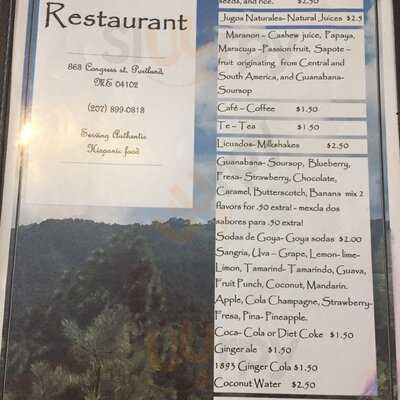 Restaurant
863 Congress st. Portland,
ME 04102
(207) 899-0813
Serving Authentic
Hispanic food
seeds, and rice. $2.50
Jugos Naturales- Natural Juices $2.5
Maranon – Cashew juice, Papaya,
Maracuya –Passion fruit, Sapote –
fruit originating from Central and
South America, and Guanabana-
Soursop
Café – Coffee $1.50
Te – Tea $1.50
Licuados- Milkshakes $2.50
Guanabana- Soursop, Blueberry,
Fresa- Strawberry, Chocolate,
Caramel, Butterscotch, Banana mix 2
flavors for .50 extra! - mexcla dos
sabores para .50 extra!
Sodas de Goya- Goya sodas $2.00
Sangria, Uva – Grape, Lemon- lime-
Limon, Tamarind- Tamarindo, Guava,
Fruit Punch, Coconut, Mandarin.
Apple, Cola Champagne, Strawberry-
Fresa, Pina- Pineapple.
Coca- Cola or Diet Coke $1.50
Ginger ale $1.50
1893 Ginger Cola $1.50
Coconut Water $2.50